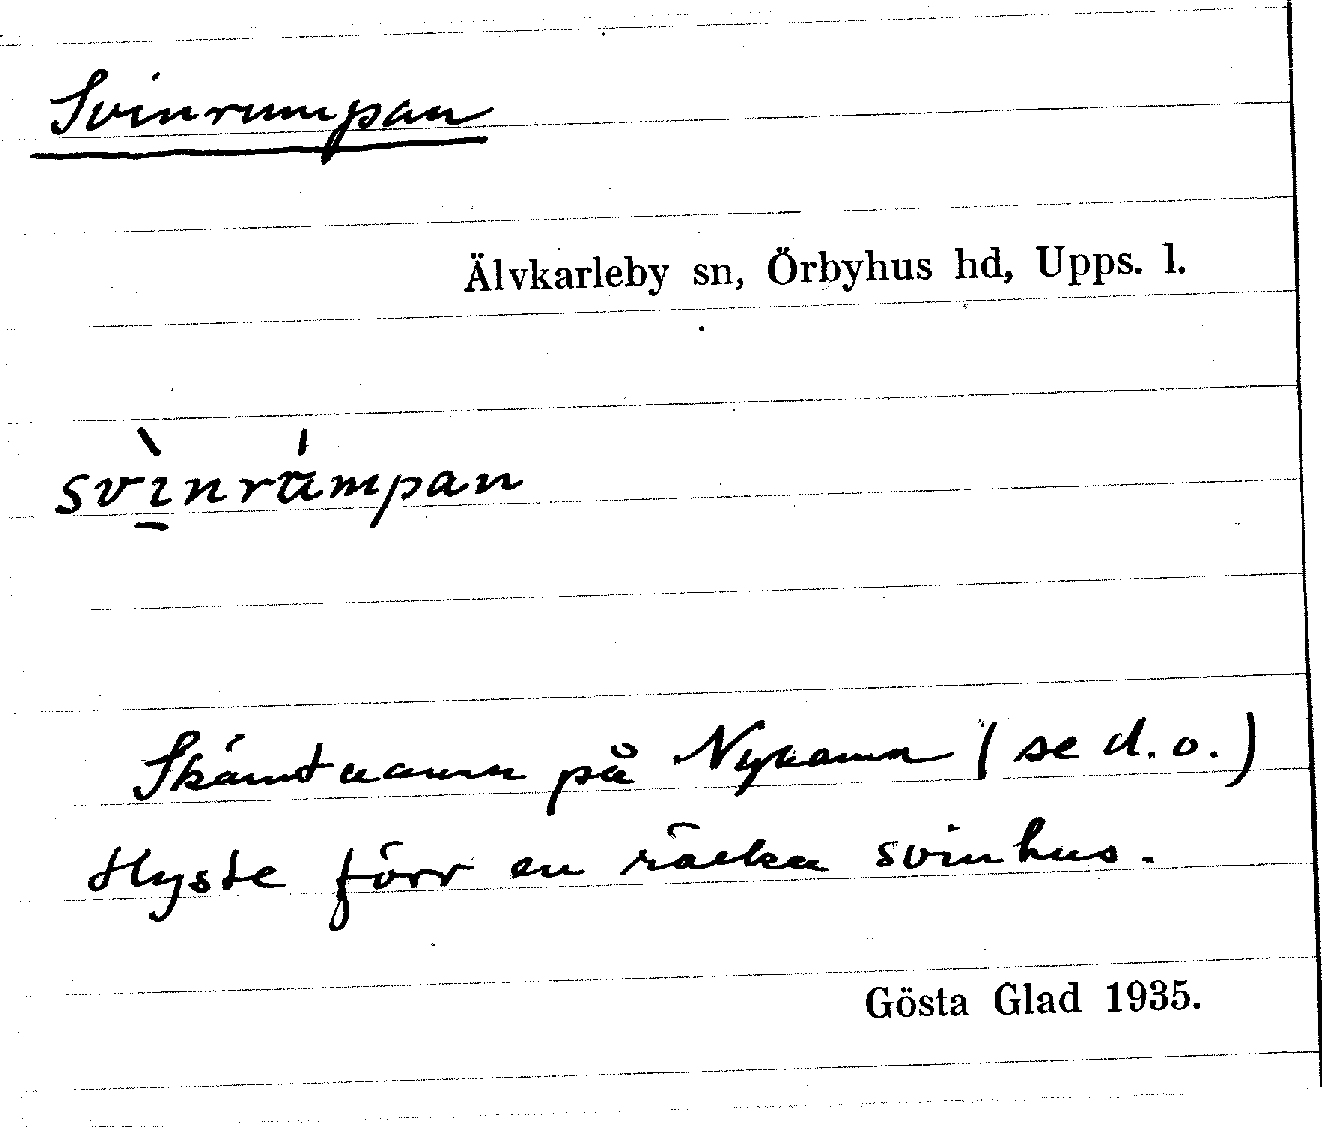 Svinrumpan
Älvkarleby sn, Örbyhus hd, Upps. l.
svı̱̀nrúmpan
Skämtnamn på Nyhamn (se d.o.)
Hyste förr en räcka svinhus.
Gösta Glad 1935.